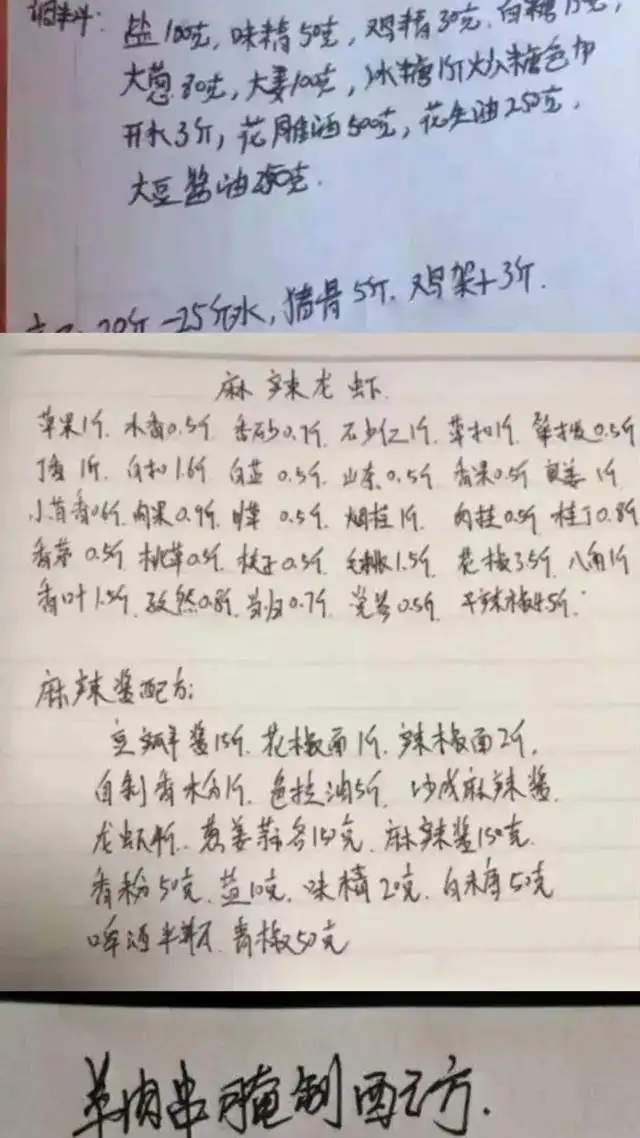 调料: 盐100克, 味精50克, 鸡精30克, 白糖15克,
大葱80克, 大姜100克, 冰糖1斤炒糖色加
开水3斤, 花雕酒500克, 花生油250克,
大豆酱油250克.
20斤-25斤水, 猪骨5斤. 鸡架+3斤.
麻辣龙虾
苹果1斤. 木香0.5斤 香砂0.7斤. 石少仁1斤. 草扣1斤. 荜拨0.5斤
丁香1斤. 白扣1.6斤 白芷0.5斤. 山奈0.5斤 香果0.5斤 良姜1斤
小茴香0.6斤. 肉果0.9斤. 甘草0.5斤. 烟桂1斤. 肉桂0.5斤 桂丁0.8斤
香茅0.5斤 枇草0.5斤. 枝子0.5斤. 毛桃1.5斤. 花椒3.5斤. 八角1斤
香叶1.5斤. 孜然0.8斤. 当归0.7斤. 0.5斤. 干辣椒4.5斤.
麻辣酱配方:
豆瓣酱15斤. 花椒面1斤. 辣椒面2斤,
自制香水鱼1斤. 色拉油5斤. 炒成麻辣酱.
龙虾4斤. 葱姜蒜各150克. 麻辣酱150克.
香粉50克. 盐10克. 味精20克. 白糖50克
啤酒半瓶. 青椒50克
羊肉串腌制配方.